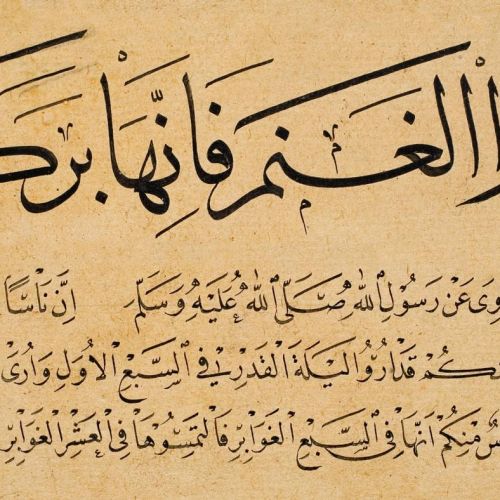 ا الغنم فانها برك
وى عن رسول الله صلى الله عليه وسلم ان ناسا
نكم قد اروا ليلة القدر في السبع الاول وارى
س منكم انها في السبع الغوابر فالتمسوها في العشر الغوابر